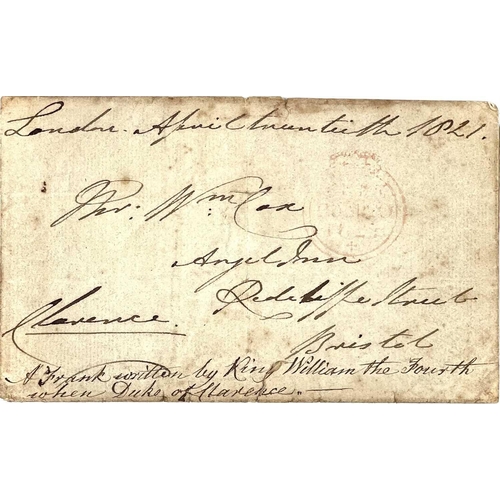 London April twentieth 1821.
Mr. Wm Cox
Angel Inn
Redcliffe Street
Clarence.
Bristol
A Frank written by King William the Fourth
when Duke of Clarence.